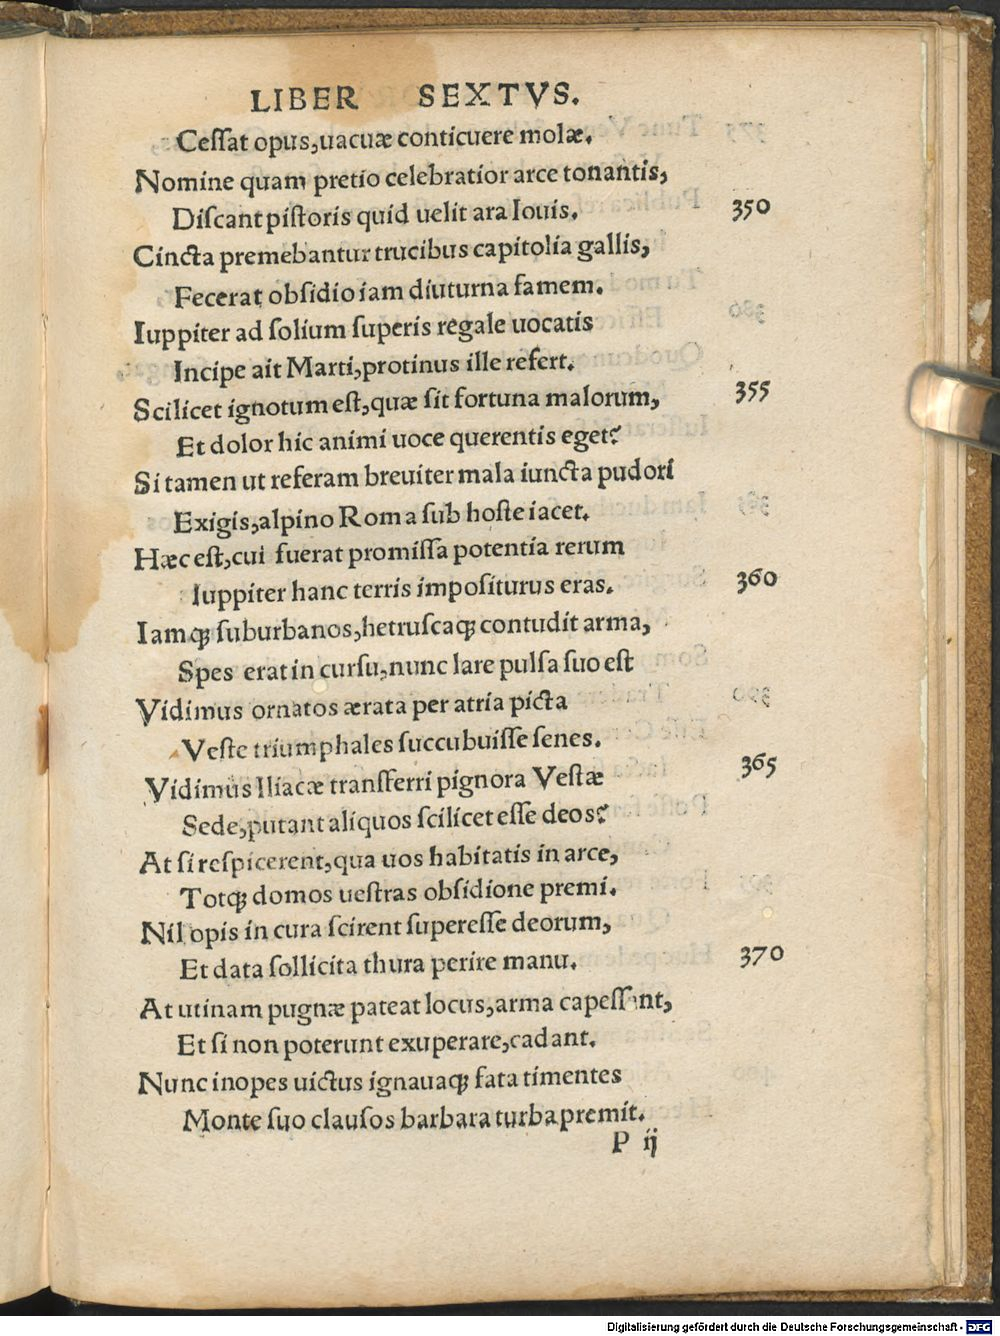 LIBER SEXTVS.
Ceſſat opus,uacuæ conticuere molæ.
Nomine quam pretio celebratior arce tonantis,
Diſcant piſtoris quid uelit ara Iouis. 350
Cincta premebantur trucibus capitolia gallis,
Fecerat obſidio iam diuturna famem.
Iuppiter ad ſolium ſuperis regale uocatis
Incipe ait Marti,protinus ille refert.
Scilicet ignotum eſt,quæ ſit fortuna malorum, 355
Et dolor hic animi uoce querentis eget?
Si tamen ut referam breuiter mala iuncta pudori
Exigis,alpino Roma ſub hoſte iacet.
Hæc eſt,cui fuerat promiſſa potentia rerum
Iuppiter hanc terris impoſiturus eras. 360
Iamqꝫ ſuburbanos,hetruſcaqꝫ contudit arma,
Spes erat in curſu,nunc lare pulſa ſuo eſt
Vidimus ornatos ærata per atria picta
Veſte triumphales ſuccubuiſſe ſenes.
Vidimus Iliacæ tranſferri pignora Veſtæ 365
Sede,putant aliquos ſcilicet eſſe deos?
At ſi reſpicerent,qua uos habitatis in arce,
Totqꝫ domos ueſtras obſidione premi.
Nil opis in cura ſcirent ſupereſſe deorum,
Et data ſollicita thura perire manu. 370
At utinam pugnæ pateat locus,arma capeſſant,
Et ſi non poterunt exuperare,cadant.
Nunc inopes uictus ignauaqꝫ fata timentes
Monte ſuo clauſos barbara turba premit.
P ij
Digitalisierung gefördert durch die Deutsche Forschungsgemeinschaft - DFG